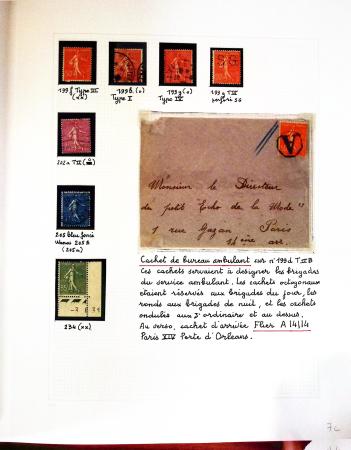 199f Type III
(xx)
199b (o)
Type I
199g (o)
Type IV
199g T IV
perforé SG
SG
202a T II
205 bleu foncé
(205a)
234 (xx)
A
Monsieur le Directeur
du petit "Echo de la Mode"
1 rue Gazan Paris
14 ème arr.
Cachet de bureau ambulant sur n°199d T. II B
Ces cachets servaient à désigner les brigades
du service ambulant. Les cachets octogonaux
étaient réservés aux brigades du jour, les
ronds aux brigades de nuit, et les cachets
ondulés aux 3° ordinaire et au dessus.
Au verso, cachet d'arrivée Flier A 14/14
Paris XIV Porte d'Orléans.
7c